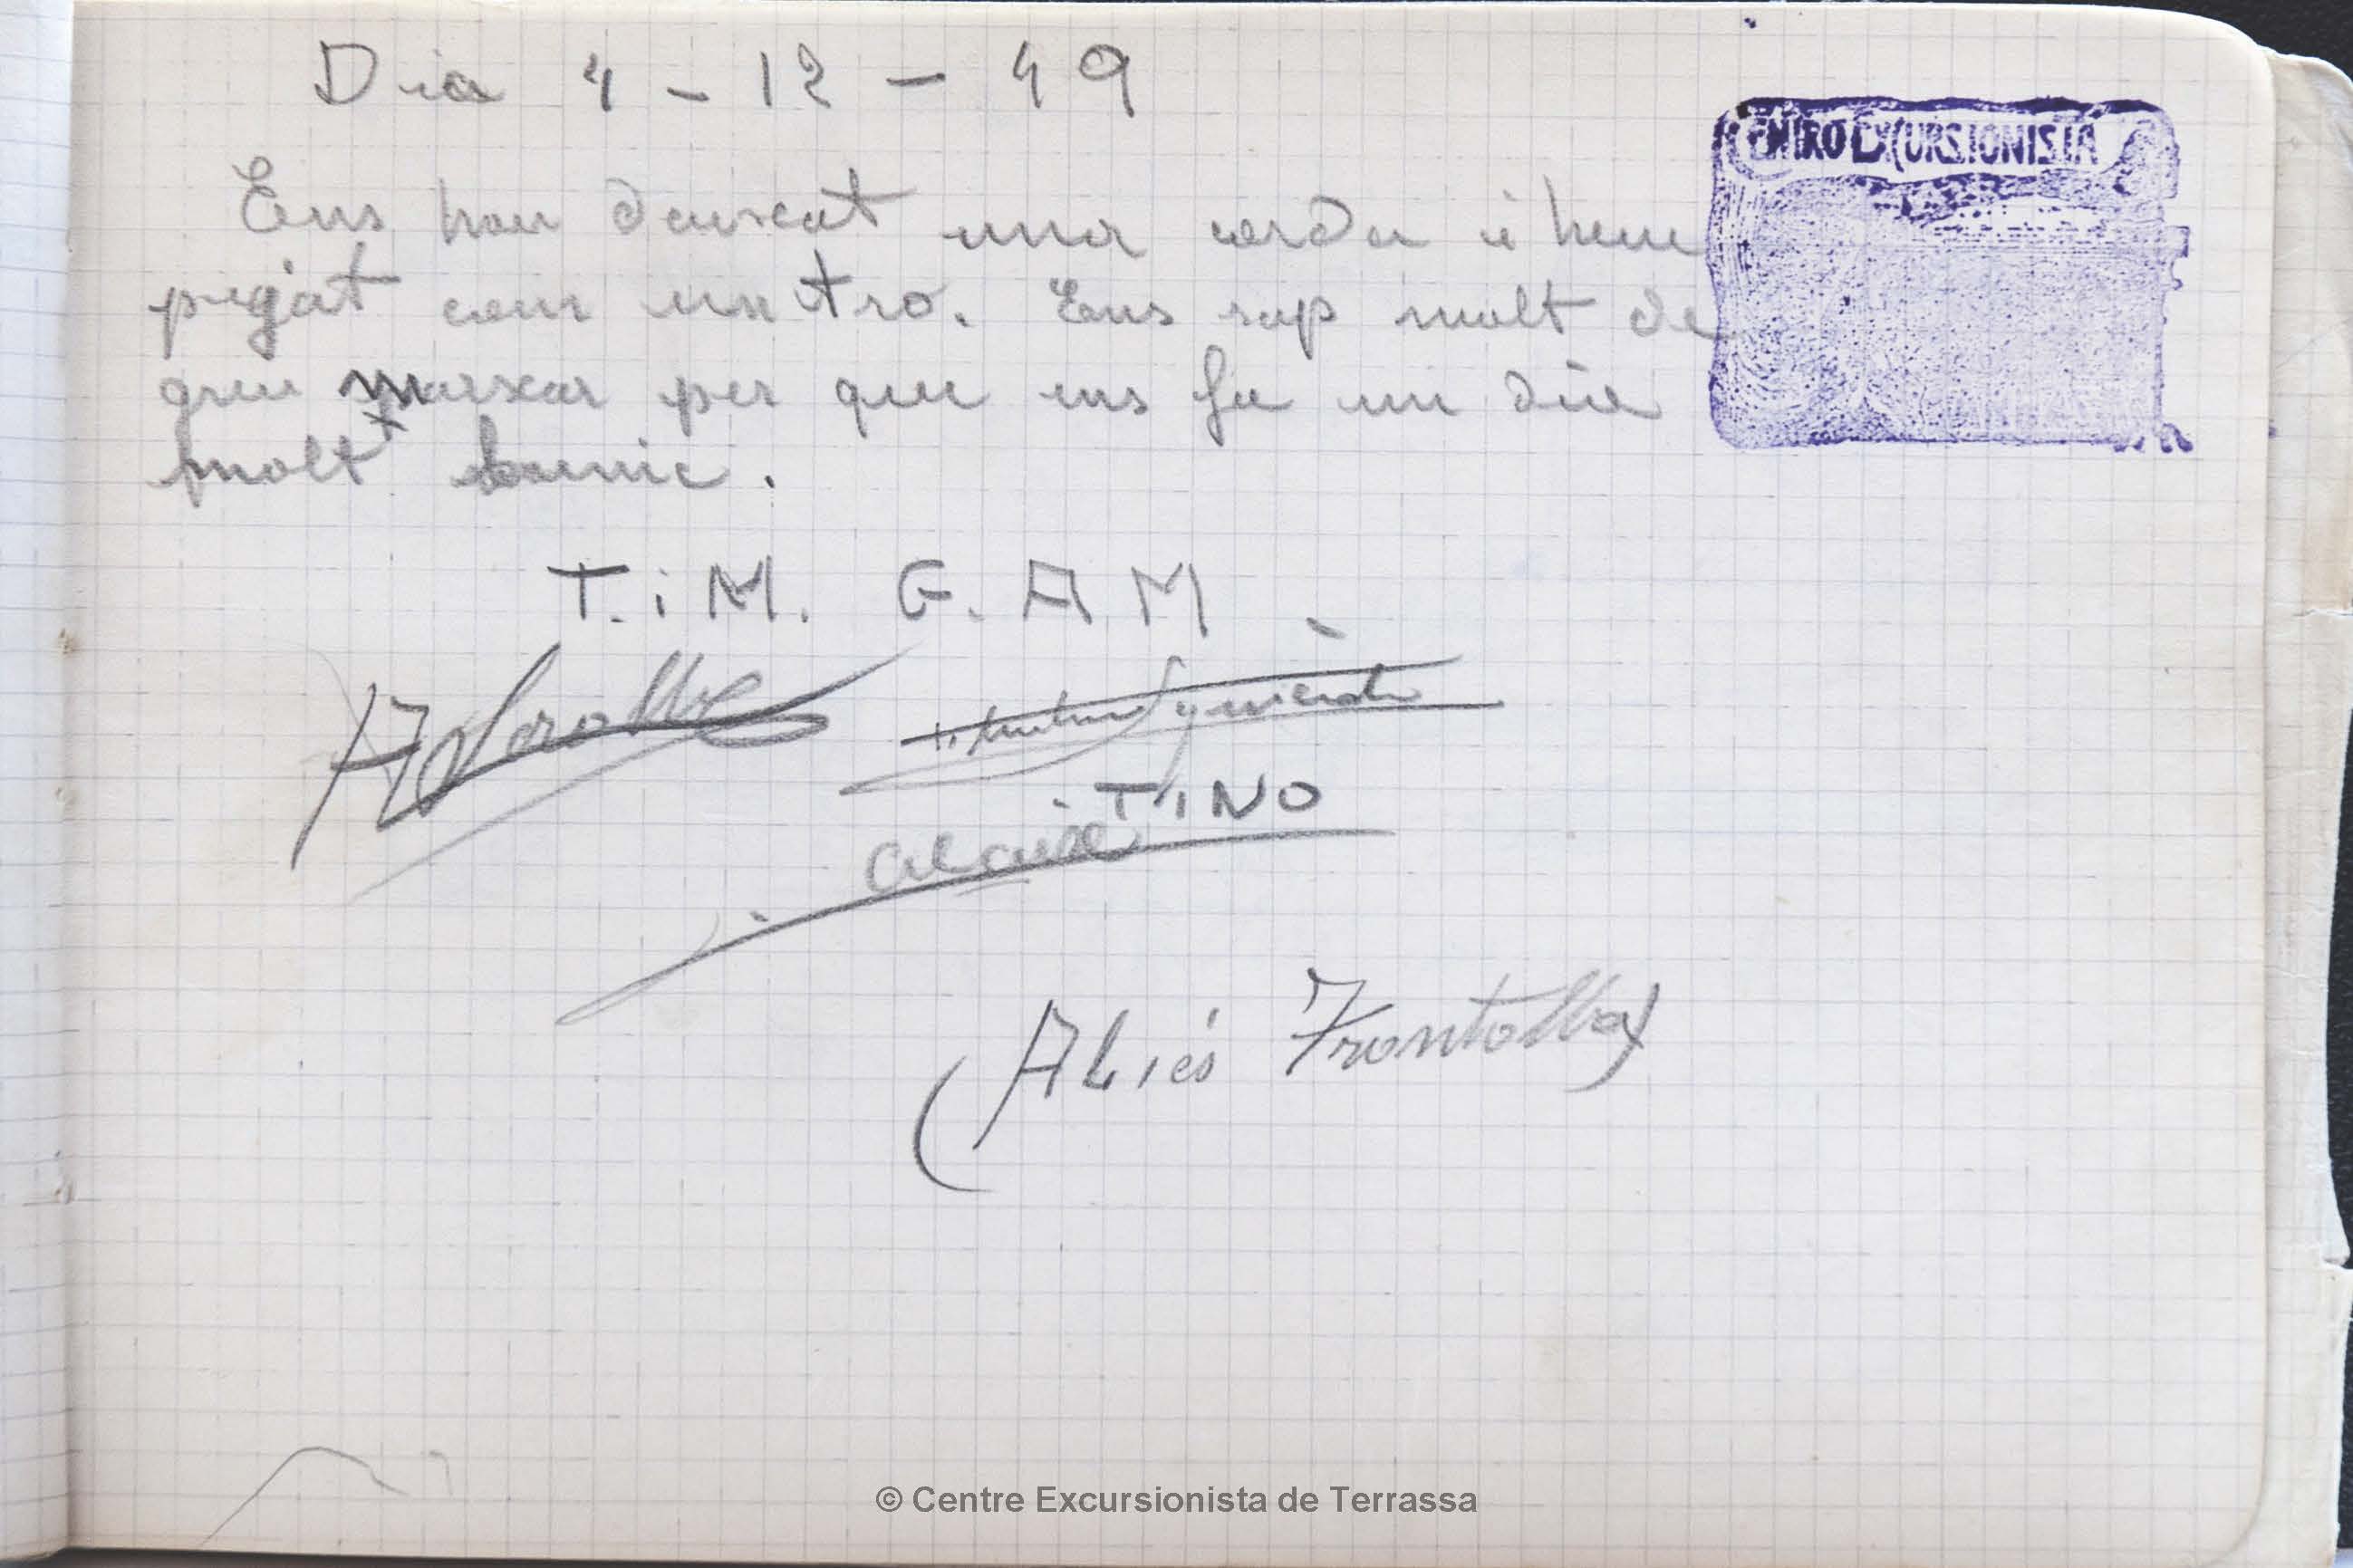 Dia 4 - 12 - 49
CENTRO EXCURSIONISTA
Ens han deixat una corda i hem
pujat com un tro. Ens sap molt de
greu marxar per que ens fa un dia
molt bonic.
T.iM. G.AM
TiNO
Aliés Frontollat
© Centre Excursionista de Terrassa